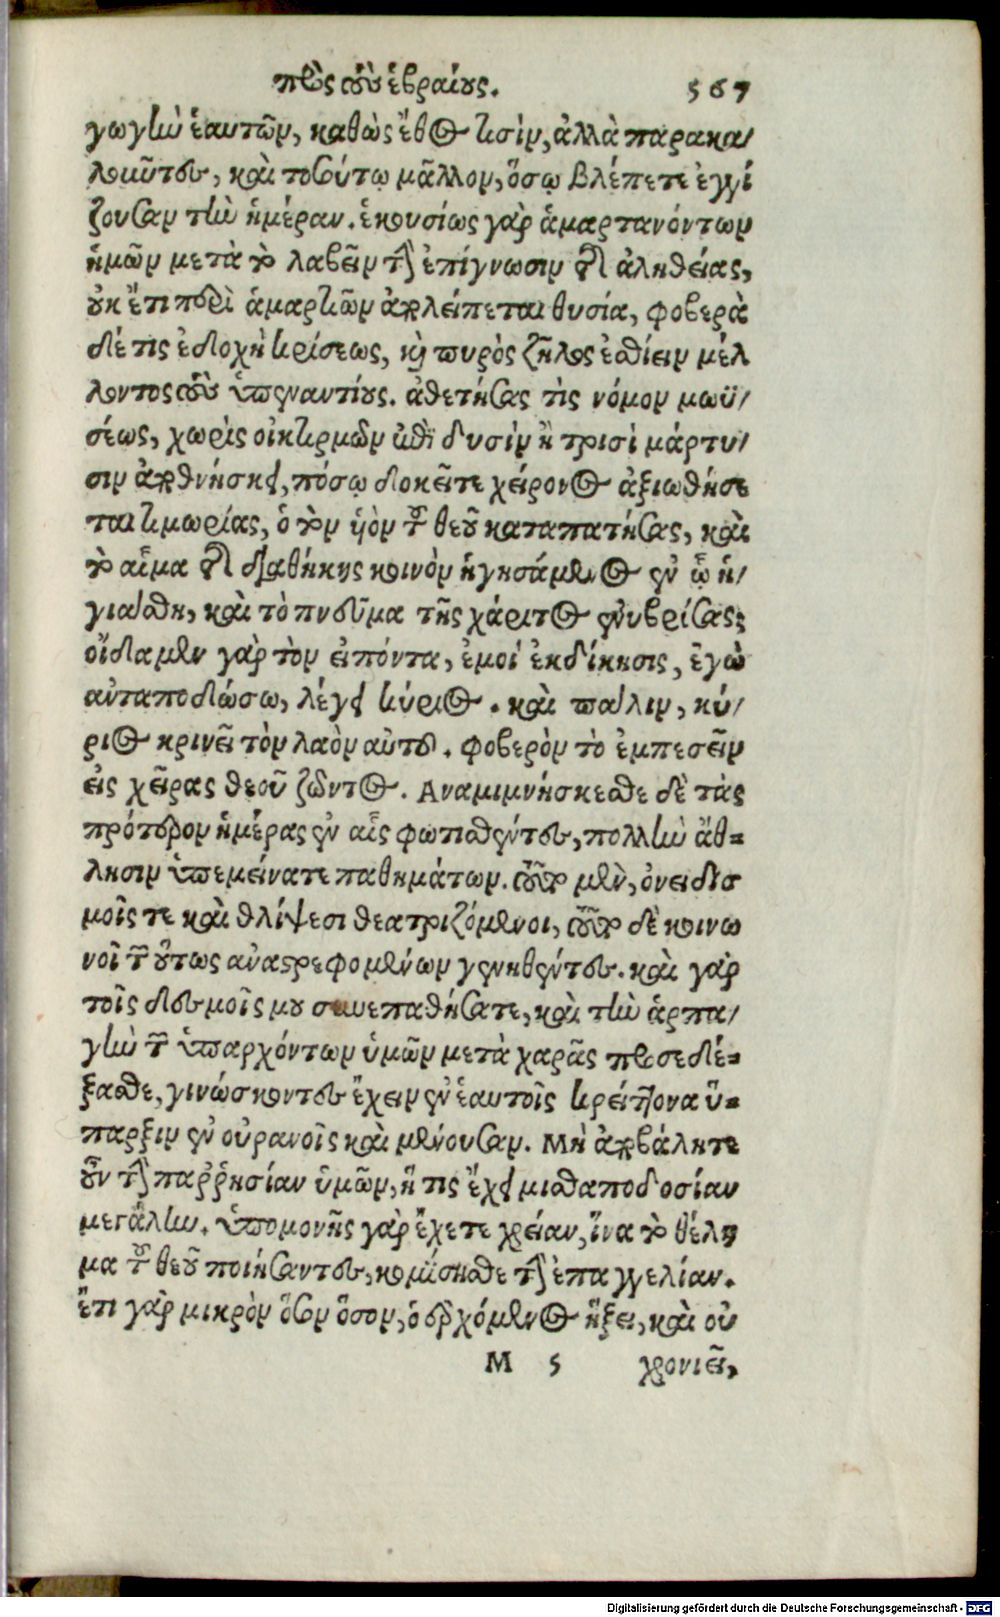 πρὸς τοὺς ἑβραίους. 567
γωγὴν ἑαυτῶν, καθὼς ἔθος τισὶν, ἀλλὰ παρακα/
λοῦντες, καὶ τοσούτῳ μᾶλλον, ὅσῳ βλέπετε ἐγγί
ζουσαν τὴν ἡμέραν. ἑκουσίως γὰρ ἁμαρτανόντων
ἡμῶν μετὰ τὸ λαβεῖν τὴν ἐπίγνωσιν τῆς ἀληθείας,
οὐκ ἔτι περὶ ἁμαρτιῶν ἀπολείπεται θυσία, φοβερὰ
δέ τις ἐκδοχὴ κρίσεως, καὶ πυρὸς ζῆλος ἐσθίειν μέλ
λοντος τοὺς ὑπεναντίους. ἀθετήσας τὶς νόμον μωϋ/
σέως, χωρὶς οἰκτιρμῶν ἐπὶ δυσὶν ἢ τρισὶ μάρτυ/
σιν ἀποθνήσκει, πόσῳ δοκεῖτε χείρονος ἀξιωθήσε
ται τιμωρίας, ὁ τὸν υἱὸν τοῦ θεοῦ καταπατήσας, καὶ
τὸ αἷμα τῆς διαθήκης κοινὸν ἡγησάμενος ἐν ᾧ ἡ/
γιάσθη, καὶ τὸ πνεῦμα τῆς χάριτος ἐνυβρίσας;
οἴδαμεν γὰρ τὸν εἰπόντα, ἐμοί ἐκδίκησις, ἐγὼ
αὐταποδώσω, λέγει κύριος. καὶ πάλιν, κύ/
ριος κρινεῖ τὸν λαὸν αὐτοῦ. φοβερὸν τὸ ἐμπεσεῖν
εἰς χεῖρας θεοῦ ζῶντος. Αναμιμνήσκεσθε δὲ τὰς
πρότερον ἡμέρας ἐν αἷς φωτισθέντες, πολλὴν ἄθ=
λησιν ὑπεμείνατε παθημάτων. τοῦτο μὲν, ὀνειδισ
μοῖς τε καὶ θλίψεσι θεατριζόμενοι, τοῦτο δὲ κοινω
νοὶ τῶν οὕτως ἀναστρεφομένων γενηθέντες. καὶ γὰρ
τοῖς δεσμοῖς μου συνεπαθήσατε, καὶ τὴν ἁρπα/
γὴν τῶν ὑπαρχόντων ὑμῶν μετὰ χαρᾶς προσεδέ=
ξασθε, γινώσκοντες ἔχειν ἐν ἑαυτοῖς κρείττονα ὕ=
παρξιν ἐν οὐρανοῖς καὶ μένουσαν. Μὴ ἀποβάλητε
οὖν τὴν παῤῥησίαν ὑμῶν, ἥ τις ἔχει μισθαποδοσίαν
μεγάλην. ὑπομονῆς γὰρ ἔχετε χρείαν, ἵνα τὸ θέλη
μα τοῦ θεοῦ ποιήσαντες, κομίσησθε τὴν ἐπαγγελίαν.
ἔτι γὰρ μικρὸν ὅσον ὅσον, ὁ ἐρχόμενος ἥξει, καὶ οὐ
M 5 χρονιεῖ,
Digitalisierung gefördert durch die Deutsche Forschungsgemeinschaft - DFG